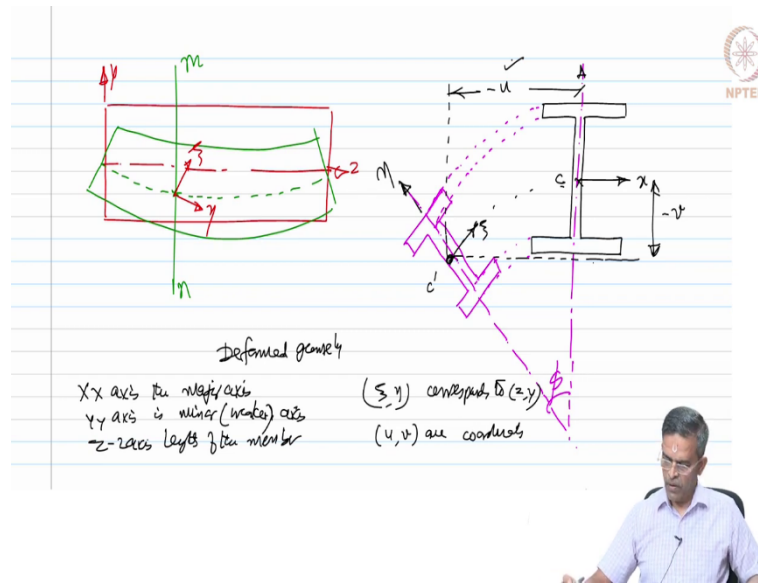 m
y
-u
A
NPTEL
ξ
z
η
n
η
ξ
c
x
-v
c'
φ
Deformed geometry
XX axis the major axis
YY axis is minor (weaker) axis
Z-Z axis length of the member
(ξ, η) corresponds to (z, y)
(u, v) are